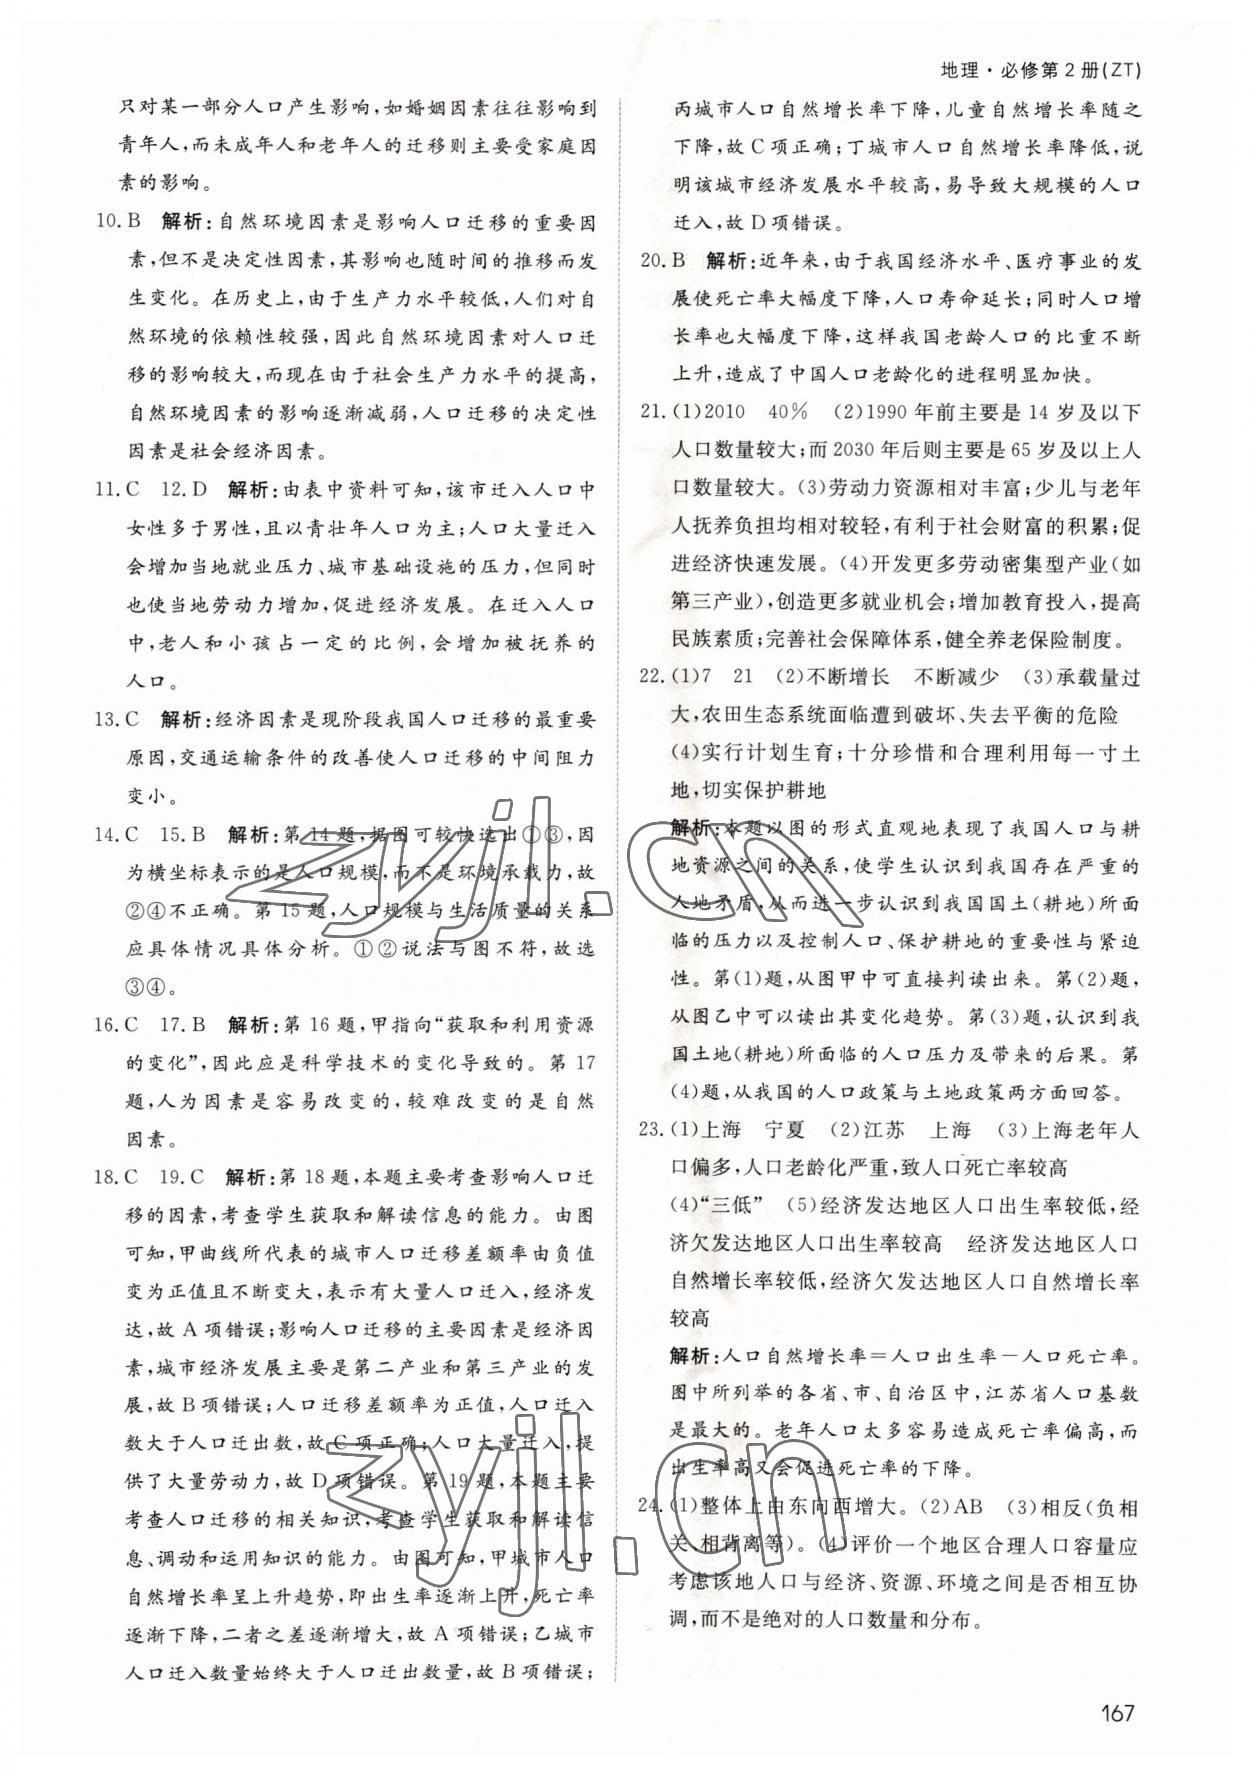 地理·必修第2册(ZT)
只对某一部分人口产生影响,如婚姻因素往往影响到
青年人,而未成年人和老年人的迁移则主要受家庭因
素的影响。
10. B 解析:自然环境因素是影响人口迁移的重要因
素,但不是决定性因素,其影响也随时间的推移而发
生变化。在历史上,由于生产力水平较低,人们对自
然环境的依赖性较强,因此自然环境因素对人口迁
移的影响较大,而现在由于社会生产力水平的提高,
自然环境因素的影响逐渐减弱,人口迁移的决定性
因素是社会经济因素。
11. C 12. D 解析:由表中资料可知,该市迁入人口中
女性多于男性,且以青壮年人口为主;人口大量迁入
会增加当地就业压力、城市基础设施的压力,但同时
也使当地劳动力增加,促进经济发展。在迁入人口
中,老人和小孩占一定的比例,会增加被抚养的
人口。
13. C 解析:经济因素是现阶段我国人口迁移的最重要
原因,交通运输条件的改善使人口迁移的中间阻力
变小。
14. C 15. B 解析:第14题,据图可较快选出①③,因
为横坐标表示的是人口规模,而不是环境承载力,故
②④不正确。第15题,人口规模与生活质量的关系
应具体情况具体分析。①②说法与图不符,故选
③④。
16. C 17. B 解析:第16题,甲指向“获取和利用资源
的变化”,因此应是科学技术的变化导致的。第17
题,人为因素是容易改变的,较难改变的是自然
因素。
18. C 19. C 解析:第18题,本题主要考查影响人口迁
移的因素,考查学生获取和解读信息的能力。由图
可知,甲曲线所代表的城市人口迁移差额率由负值
变为正值且不断变大,表示有大量人口迁入,经济发
达,故A项错误;影响人口迁移的主要因素是经济因
素,城市经济发展主要是第二产业和第三产业的发
展,故B项错误;人口迁移差额率为正值,人口迁入
数大于人口迁出数,故C项正确;人口大量迁入,提
供了大量劳动力,故D项错误。第19题,本题主要
考查人口迁移的相关知识,考查学生获取和解读信
息、调动和运用知识的能力。由图可知,甲城市人口
自然增长率呈上升趋势,即出生率逐渐上升,死亡率
逐渐下降,二者之差逐渐增大,故A项错误;乙城市
人口迁入数量始终大于人口迁出数量,故B项错误;
丙城市人口自然增长率下降,儿童自然增长率随之
下降,故C项正确;丁城市人口自然增长率降低,说
明该城市经济发展水平较高,易导致大规模的人口
迁入,故D项错误。
20. B 解析:近年来,由于我国经济水平、医疗事业的发
展使死亡率大幅度下降,人口寿命延长;同时人口增
长率也大幅度下降,这样我国老龄人口的比重不断
上升,造成了中国人口老龄化的进程明显加快。
21. (1)2010 40% (2)1990年前主要是14岁及以下
人口数量较大;而2030年后则主要是65岁及以上人
口数量较大。(3)劳动力资源相对丰富;少儿与老年
人抚养负担均相对较轻,有利于社会财富的积累;促
进经济快速发展。(4)开发更多劳动密集型产业(如
第三产业),创造更多就业机会;增加教育投入,提高
民族素质;完善社会保障体系,健全养老保险制度。
22. (1)7 21 (2)不断增长 不断减少 (3)承载量过
大,农田生态系统面临遭到破坏、失去平衡的危险
(4)实行计划生育;十分珍惜和合理利用每一寸土
地,切实保护耕地
解析:本题以图的形式直观地表现了我国人口与耕
地资源之间的关系,使学生认识到我国存在严重的
人地矛盾,从而进一步认识到我国国土(耕地)所面
临的压力以及控制人口、保护耕地的重要性与紧迫
性。第(1)题,从图甲中可直接判读出来。第(2)题,
从图乙中可以读出其变化趋势。第(3)题,认识到我
国土地(耕地)所面临的人口压力及带来的后果。第
(4)题,从我国的人口政策与土地政策两方面回答。
23. (1)上海 宁夏 (2)江苏 上海 (3)上海老年人
口偏多,人口老龄化严重,致人口死亡率较高
(4)“三低” (5)经济发达地区人口出生率较低,经
济欠发达地区人口出生率较高 经济发达地区人口
自然增长率较低,经济欠发达地区人口自然增长率
较高
解析:人口自然增长率=人口出生率-人口死亡率。
图中所列举的各省、市、自治区中,江苏省人口基数
是最大的。老年人口太多容易造成死亡率偏高,而
出生率高又会促进死亡率的下降。
24. (1)整体上由东向西增大。(2)AB (3)相反(负相
关、相背离等)。(4)评价一个地区合理人口容量应
考虑该地人口与经济、资源、环境之间是否相互协
调,而不是绝对的人口数量和分布。
167
zyjl.cn
zyjl.cn